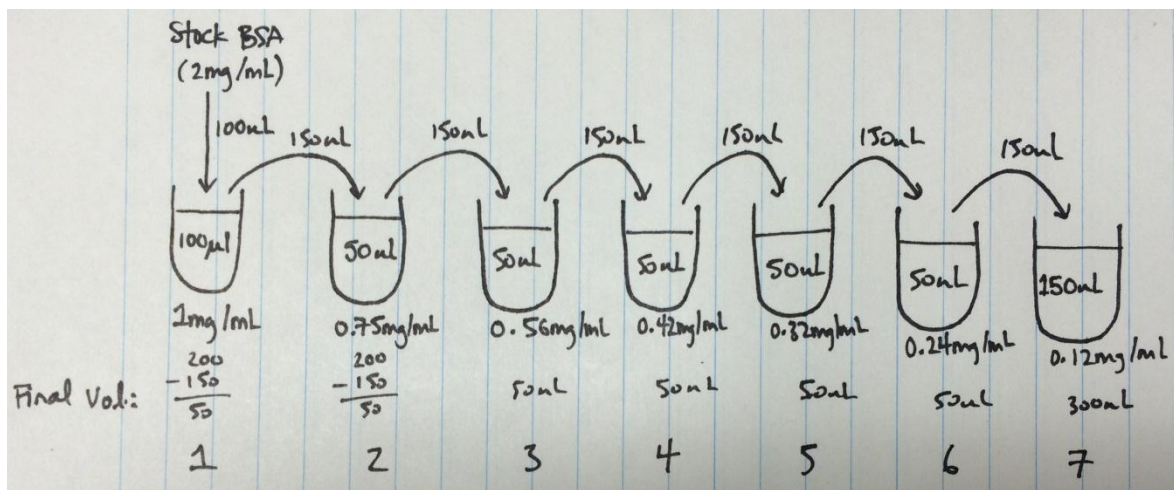 Stock BSA
(2mg/mL)
100uL
150uL
150uL
150uL
150uL
150uL
150uL
100µl
50uL
50uL
50uL
50uL
50uL
150uL
1mg/mL
0.75mg/mL
0.56mg/mL
0.42mg/mL
0.32mg/mL
0.24mg/mL
0.12mg/mL
Final Vol.:
200
-150
50
200
-150
50
50uL
50uL
50uL
50uL
300uL
1 2 3 4 5 6 7